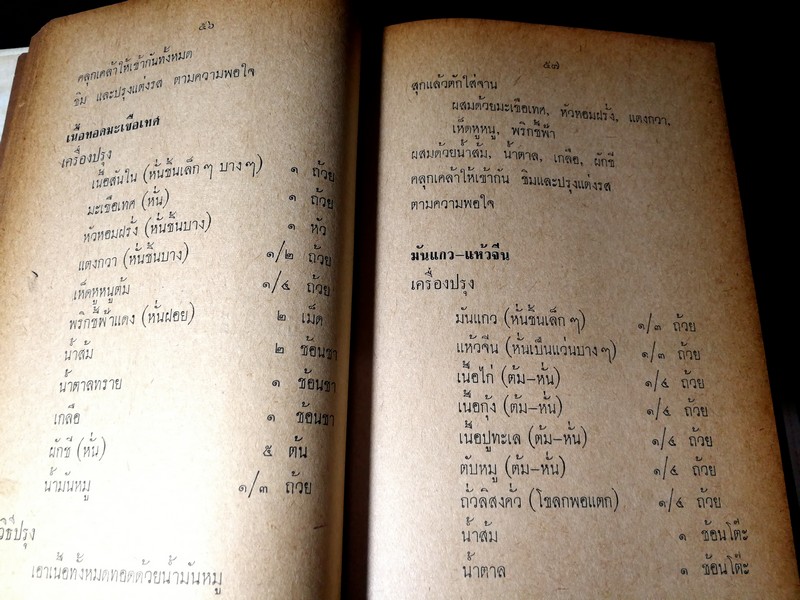 ๕๖
คลุกเคล้าให้เข้ากันทั้งหมด
ชิม และปรุงแต่งรส ตามความพอใจ
เนื้อทอดมะเขือเทศ
เครื่องปรุง
เนื้อสันใน (หั่นชิ้นเล็ก ๆ บาง ๆ) ๑ ถ้วย
มะเขือเทศ (หั่น) ๑ ถ้วย
หัวหอมฝรั่ง (หั่นชิ้นบาง) ๑ หัว
แตงกวา (หั่นชิ้นบาง) ๑/๒ ถ้วย
เห็ดหูหนูต้ม ๑/๔ ถ้วย
พริกชี้ฟ้าแดง (หั่นฝอย) ๒ เม็ด
น้ำส้ม ๒ ช้อนชา
น้ำตาลทราย ๑ ช้อนชา
เกลือ ๑ ช้อนชา
ผักชี (หั่น) ๕ ต้น
น้ำมันหมู ๑/๓ ถ้วย
วิธีปรุง
เอาเนื้อทั้งหมดทอดด้วยน้ำมันหมู
๕๗
สุกแล้วตักใส่จาน
ผสมด้วยมะเขือเทศ, หัวหอมฝรั่ง, แตงกวา,
เห็ดหูหนู, พริกชี้ฟ้า
ผสมด้วยน้ำส้ม, น้ำตาล, เกลือ, ผักชี
คลุกเคล้าให้เข้ากัน ชิมและปรุงแต่งรส
ตามความพอใจ
มันแกว–แห้วจีน
เครื่องปรุง
มันแกว (หั่นชิ้นเล็ก ๆ) ๑/๓ ถ้วย
แห้วจีน (หั่นเป็นแว่นบาง ๆ) ๑/๓ ถ้วย
เนื้อไก่ (ต้ม–หั่น) ๑/๔ ถ้วย
เนื้อกุ้ง (ต้ม–หั่น) ๑/๔ ถ้วย
เนื้อปูทะเล (ต้ม–หั่น) ๑/๔ ถ้วย
ตับหมู (ต้ม–หั่น) ๑/๔ ถ้วย
ถั่วลิสงคั่ว (โขลกพอแตก) ๑/๔ ถ้วย
น้ำส้ม ๑ ช้อนโต๊ะ
น้ำตาล ๑ ช้อนโต๊ะ